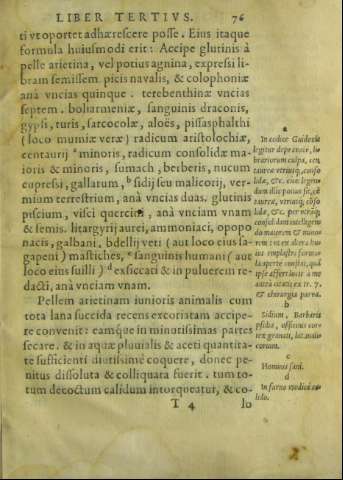 LIBER TERTIVS. 76
ti vt oportet adhærescere posse. Eius itaque
formula huiusmodi erit: Accipe glutinis à
pelle arietina, vel potius agnina, expressi li-
bram semissem. picis naualis, & colophoniæ
anà vncias quinque. terebenthinæ vncias
septem. boliarmeniæ, sanguinis draconis,
gypsi, turis, sarcocolæ, aloës, pissasphalthi
(loco mumiæ veræ) radicum aristolochiæ,
centaurij ª minoris, radicum consolidæ ma-
ioris & minoris, sumach, berberis, nucum
cupressi, gallarum, ᵇ sidij seu malicorij, ver-
mium terrestrium, anà vncias duas. glutinis
piscium, visci quercini, anà vnciam vnam
& semis. litargyrij aurei, ammoniaci, opopo
nacis, galbani, bdellij veti (aut loco eius la-
gapeni) mastiches, ᶜ sanguinis humani (aut
loco eius suilli) ᵈ exsiccati & in puluerem re-
dacti, anà vnciam vnam.
Pellem arietinam iunioris animalis cum
tota lana succida recens excoriatam accipe-
re conuenit: eamque in minutissimas partes
secare. & in aquæ pluuialis & aceti quantita-
te sufficienti diutissimè coquere, donec pe-
nitus dissoluta & colliquata fuerit. tum to-
tum decoctum calidum intorqueatur, & co-
T 4 lo
a
In codice Guidonis
legitur depreensie, li-
brariorum culpa, cen
taureæ vtriusq, conso
lidæ, &c.
& chirurgia parua.
b
Sidium, Barbaris
psidia, officinis cor-
tex granati, lat. mali-
corium.
c
Hominis sani.
d
In furno modicè ca-
lido.